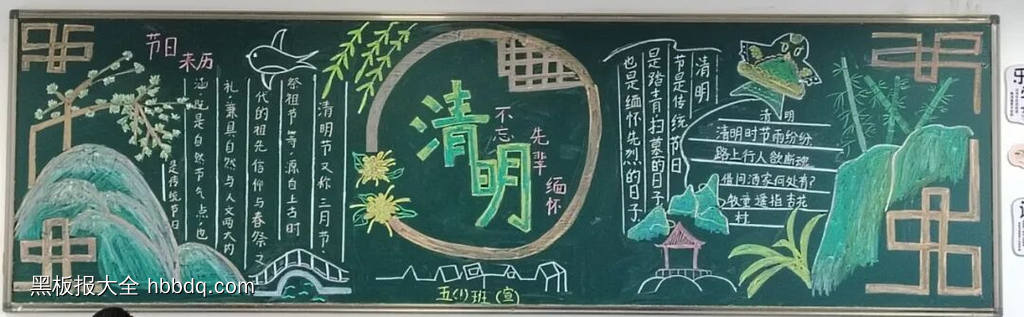 节日
来历
清明节又称三月节
祭祖节等,源自上古时
代的祖先信仰与春祭
礼兼具自然与人文两大内
涵既是自然节气点也
是传统节日
清明
不忘
先辈
缅怀
五(1)班(宣)
清明
节是传统节日
是踏青扫墓的日子
也是缅怀先烈的日子
清明
清明时节雨纷纷
路上行人欲断魂
借问酒家何处有?
牧童遥指杏花
村
黑板报大全 hbbdq.com